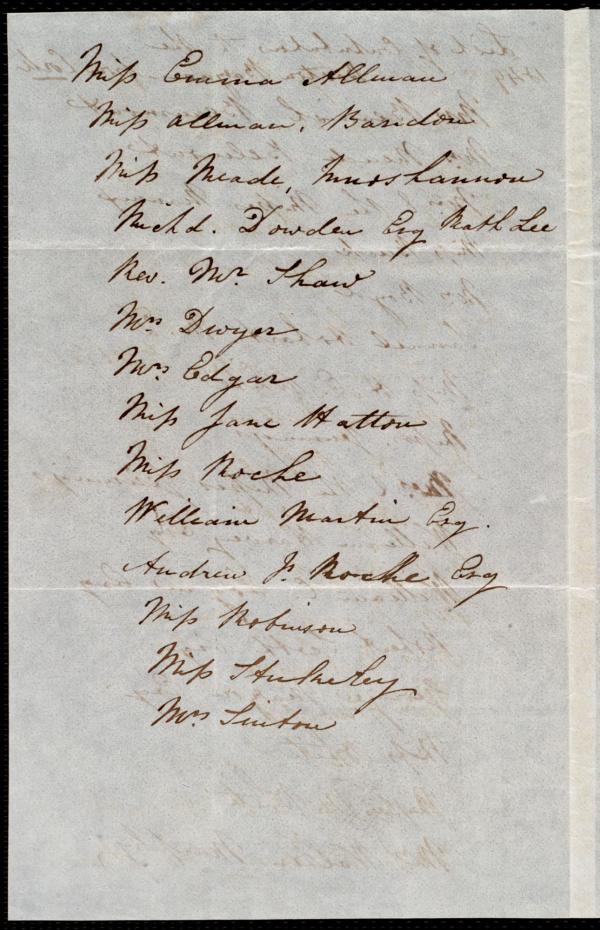 Miss Emma Allman
Miss Allman, Bandon
Miss Meade, Innoshannon
Richd. Dowden Esq Rath Lee
Rev. Mr. Shaw
Mrs Dwyer
Mrs. Edgar
Miss Jane Hatton
Miss Roche
William Martin Esq.
Andrew Js. Roche Esq
Miss Robinson
Miss
Mrs Sinton